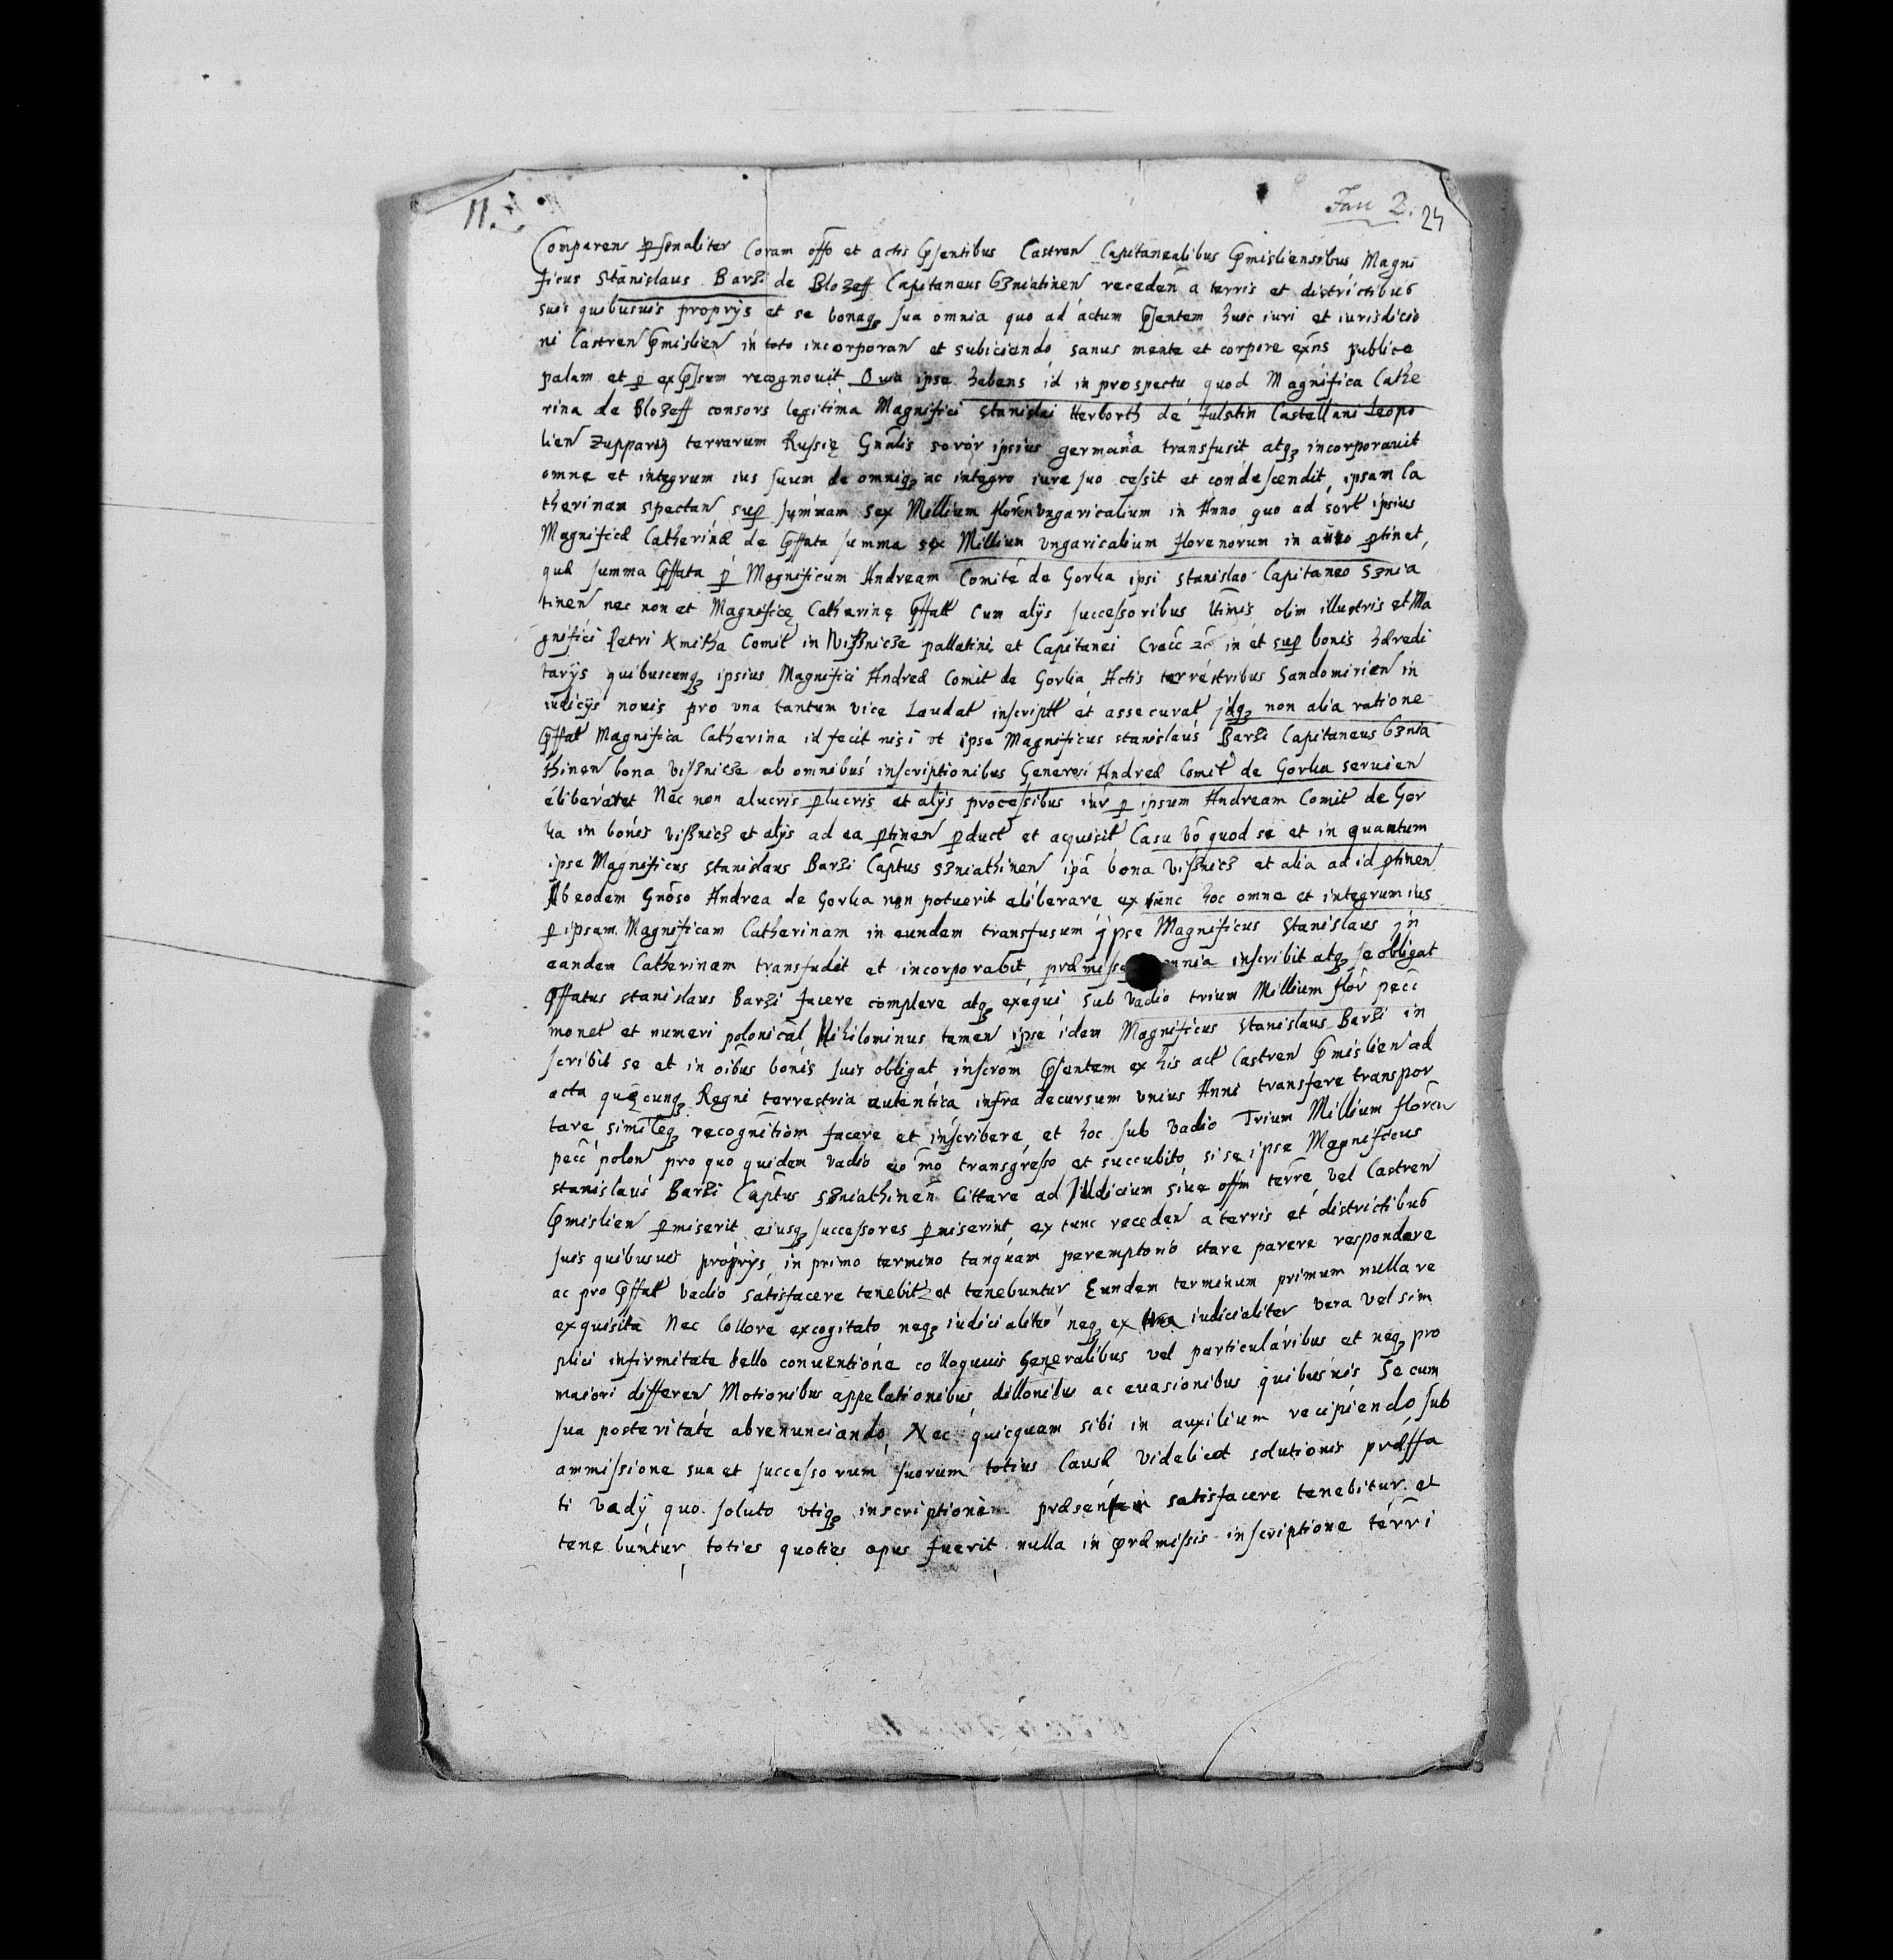 11.
Jan 2. 24
Comparens psonaliter Coram offo et actis Pnsentibus Castren Capitanealibus Pmisliensibus Magni
ficus Stanislaus Barzi de Blozeff Capitaneus Szniatinen receden a terris et districtibus
suis quibusuis proprys et se bonaq sua omnia quo ad actum Psentem huic iuri et iurisdicio
ni Castren Pmislien in toto incorporan et subiciendo sanus mente et corpore exns publice
palam et p exPssum recognouit Quia ipse habens id in prospectu quod Magnifica Cathe
rina de Blozeff consors legitima Magnifici Stanislai Herborth de Fulstin Castellani Leopo
lien Zupparq terrarum Russię Gnalis soror ipsius germana transfusit atq incorporauit
omne et integrum ius suum de omniq ac integro iure suo cessit et condescendit ipsam Ca
therinam spectan sup summam sex Millium floren Vngaricalium in Anno quo ad sort ipsius
Magnificæ Catherinæ de Pffata summa sex Millium vngaricalium florenorum in anno ptinet,
quæ summa Pffata p Magnificum Andream Comite de Gorka ipsi Stanislao Capitaneo Sznia
tinen nec non et Magnificę Catherinę Pffatt Cum alÿs successoribus Utinis olim illustris et Ma
gnifici Petri Kmitha Comit in Vissnicze pallatini et Capitanei Cracc zc in et sup bonis hæredi
tarÿs quibuscunq ipsius Magnifici Andreæ Comit de Gorka Actis terrestribus Sandomirien in
iudicÿs nouis pro vna tantum vice Laudat inscriptt et assecurat jdq non alia ratione
Pffat Magnifica Catherina id fecit nisi vt ipse Magnificus Stanislaus Barzi Capitaneus Sznia
thinen bona Vissnicze ab omnibus inscriptionibus Generosi Andreæ Comit de Gorka seruien
eliberatet Nec non alucris plucris et alÿs processibus iur p ipsum Andream Comit de Gor
ka in bones vissnicz et alÿs ad ea ptinen pduct et acquisit Casu vo quod se et in quantum
ipse Magnificus Stanislaus Barzi Captus Szniathinen ipa bona Vissnicz et alia ad id ptinen
Ab eodem Gnoso Andrea de Gorka non potuerit eliberare ex tunc hoc omne et integrum ius
p ipsam Magnificam Catherinam in eundem transfusum jpse Magnificus Stanislaus jn
eandem Catherinam transfudit et incorporabit præmissa omnia inscribit atq se obligat
Pffatus Stanislaus Barzi facere complere atq exequi sub Vadio trium Millium flor pecc
monet et numeri polonical Nihilominus tamen ipse idem Magnificus Stanislaus Barzi in
scribit se et in oibus bonis suis obligat inscrom Psentem ex his act Castren Pmislien ad
acta quęcunq Regni terrestria autentica infra decursum vnius Anni transfere transpor
tare simileq recognitiom facere et inscribere et hoc sub Vadio Trium Millium floren
pecc polon pro quo quidem Vadio eo mo transgresso et succubito si se ipse Magnificus
Stanislaus Barzi Captus Szniathinen Cittare ad Judicium siue offm terre vel Castren
Pmislien pmiserit eiusq successores pmiserint ex tunc receden a terris et districtibus
suis quibusuis proprys in primo termino tanquam peremptorio stare parere respondere
ac pro Pffat Vadio satisfacere tenebitz et tenebuntur Eundem terminum primum nulla re
exquisita Nec Collore excogitato neq iudicialiter neq ex tra iudicialiter vera vel sim
plici infirmitate bello conuentione colloquuis Generalibus vel particularibus et neq pro
maiori differen Motionibus appelationibus dillonibus ac euasionibus quibusuis Se cum
sua posteritate abrenunciando Nec quicquam sibi in auxilium recipiendo sub
ammissione sua et successorum suorum totius Causæ Videlicet solutionis præffa
ti Vadÿ quo soluto vtiq inscriptione præsentem satisfacere tenebitur et
tenebuntur toties quoties opus fuerit nulla in præmissis inscriptione terri